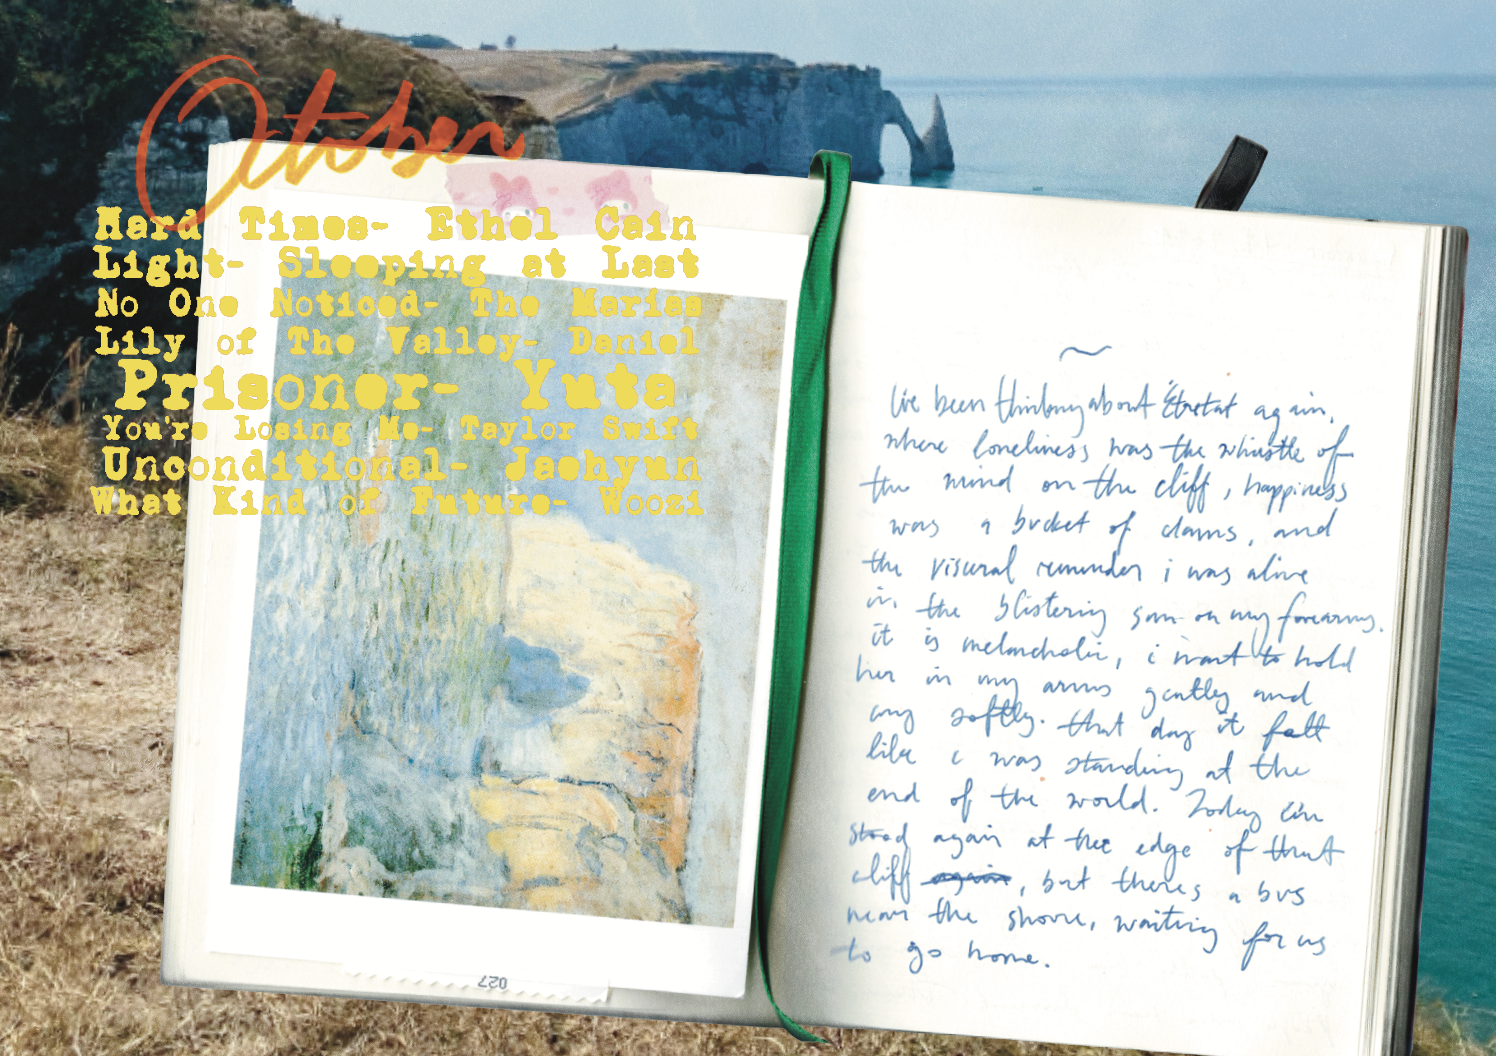 October
Hard Times- Ethel Cain
Light- Sleeping at Last
No One Noticed- The Marias
Lily of The Valley- Daniel
Prisoner- Yuta
You're Losing Me- Taylor Swift
Unconditional- Jaehyun
What Kind of Future- Woozi
027
~
i've been thinking about Étretat again,
where loneliness was the whistle of
the wind on the cliff, happiness
was a bucket of clams, and
the visual reminder i was alive
in the blistering sun on my forearms.
it is melancholic, i want to hold
her in my arms gently and
cry softly. that day it felt
like i was standing at the
end of the world. Today i'm
stood again at the edge of that
cliff again, but there's a bus
near the shore, waiting for us
to go home.